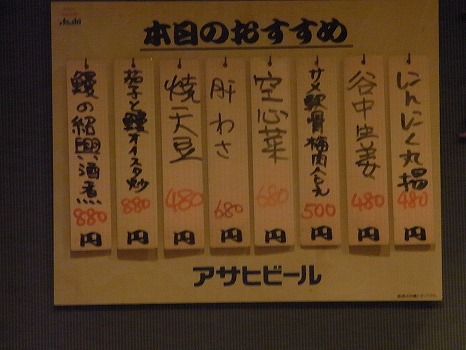 Asahi
本日のおすすめ
にんにく丸揚 480 円
谷中生姜 480 円
サメ軟骨梅肉和え 500 円
空心菜 680 円
肝わさ 680 円
焼天豆 480 円
茄子と鰻オイスター炒 880 円
鰻の紹興酒煮 880 円
アサヒビール